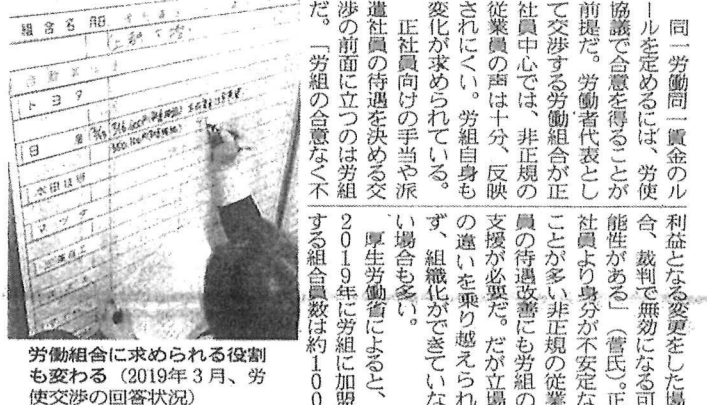 同一労働同一賃金のル
ールを定めるには、労使
協議で合意を得ることが
前提だ。労働者代表とし
て交渉する労働組合が正
社員中心では、非正規の
従業員の声は十分、反映
されにくい。労組自身も
変化が求められている。
正社員向けの手当や派
遣社員の待遇を決める交
渉の前面に立つのは労組
だ。「労組の合意なく不
利益となる変更をした場
合、裁判で無効になる可
能性がある」(菅氏)。正
社員より身分が不安定な
ことが多い非正規の従業
員の待遇改善にも労組の
支援が必要だ。だが立場
の違いを乗り越えられ
ず、組織化ができていな
い場合も多い。
厚生労働省によると、
2019年に労組に加盟
する組合員数は約100
組合名
トヨタ
日産
本田技研
マツダ
労働組合に求められる役割
も変わる(2019年3月、労
使交渉の回答状況)